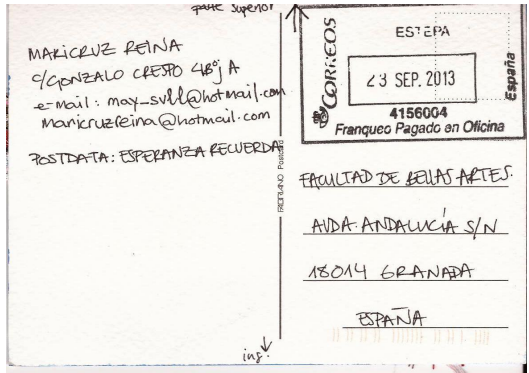 parte superior
MARICRUZ REINA
C/GONZALO CRESPO 4Bºj A
e-mail: may-svll@hotmail.com
maricruzreina@hotmail.com
POSTDATA: ESPERANZA RECUERDA
FABRIANO Postcard
CORREOS
ESTEPA
23 SEP. 2013
España
4156004
Franqueo Pagado en Oficina
FACULTAD DE BELLAS ARTES.
AVDA. ANDALUCÍA S/N
18014 GRANADA
ESPAÑA